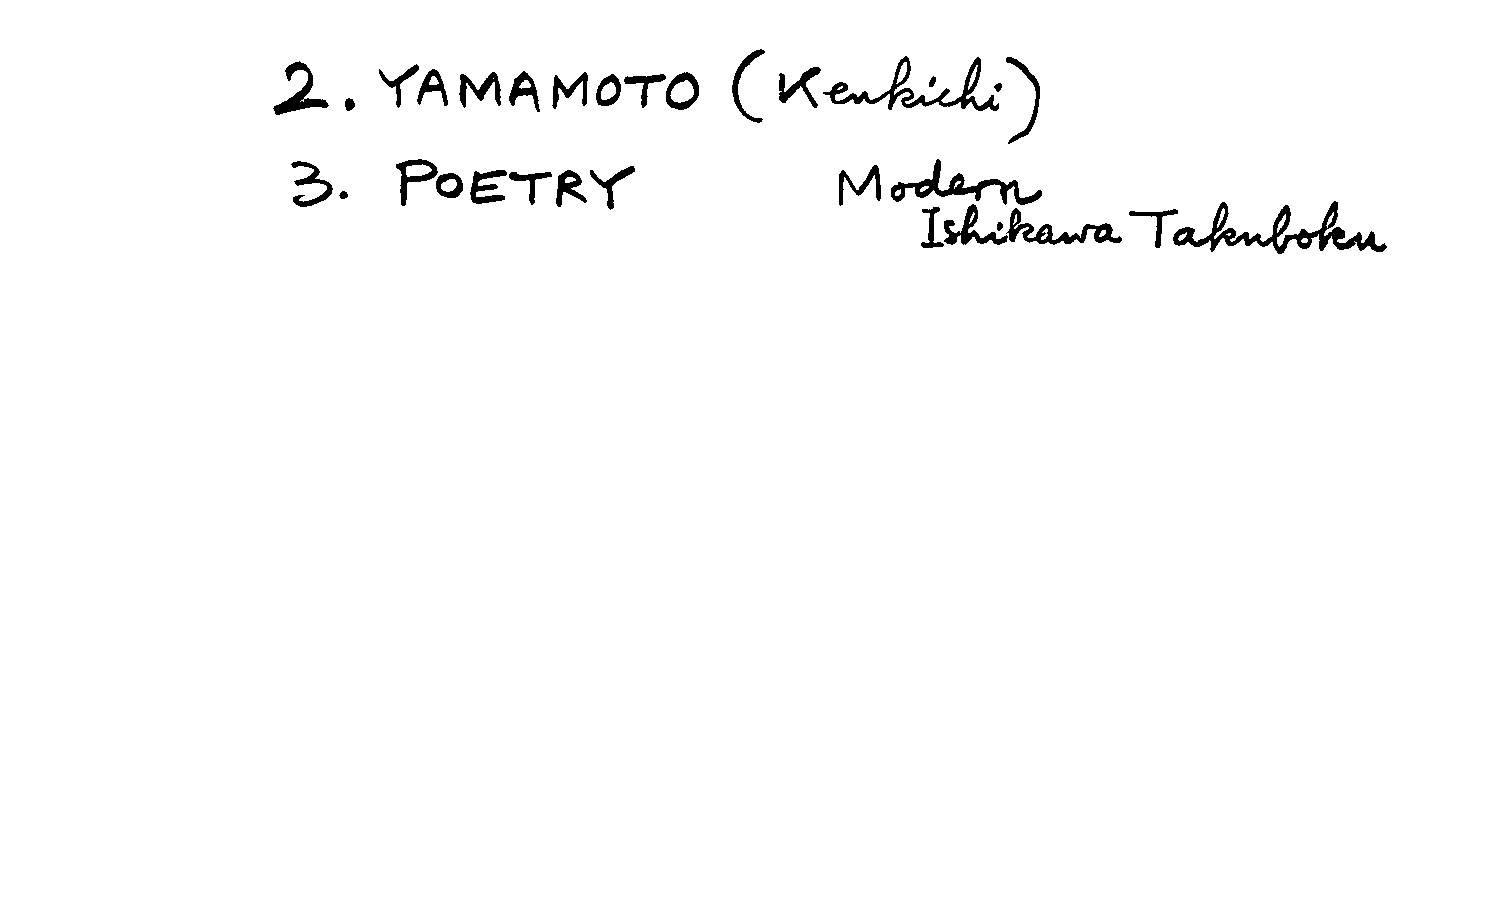 2. YAMAMOTO (Kenkichi)
3. POETRY Modern
Ishikawa Takuboku